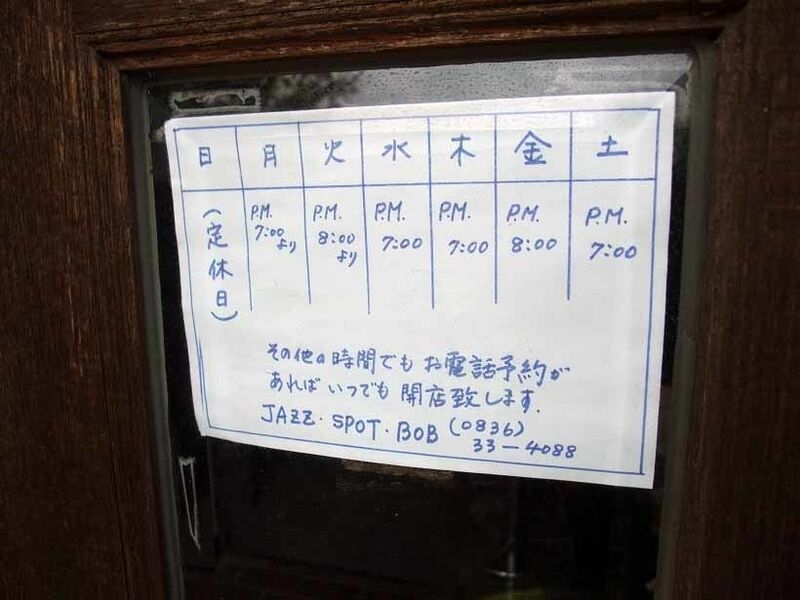 日 月 火 水 木 金 土
(定休日) P.M. 7:00 より P.M. 8:00 より P.M. 7:00 P.M. 7:00 P.M. 8:00 P.M. 7:00
その他の時間でもお電話予約が
あればいつでも開店致します.
JAZZ・SPOT・BOB (0836)
33-4088